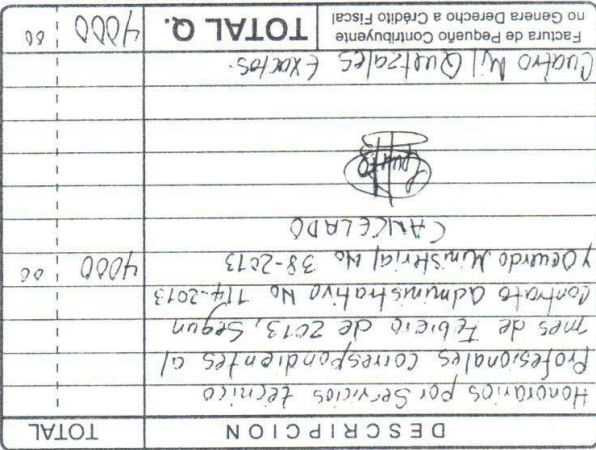 DESCRIPCION TOTAL
Honorarios por Servicios técnico
Profesionales correspondientes al
mes de Febrero de 2013, Segun
Contrato Administrativo No 114-2013
y Acuerdo Ministerial No 38-2013 4000 00
CANCELADO
Cuatro Mil Quetzales Exactos.
Factura de Pequeño Contribuyente
no Genera Derecho a Crédito Fiscal
TOTAL Q. 4000 00